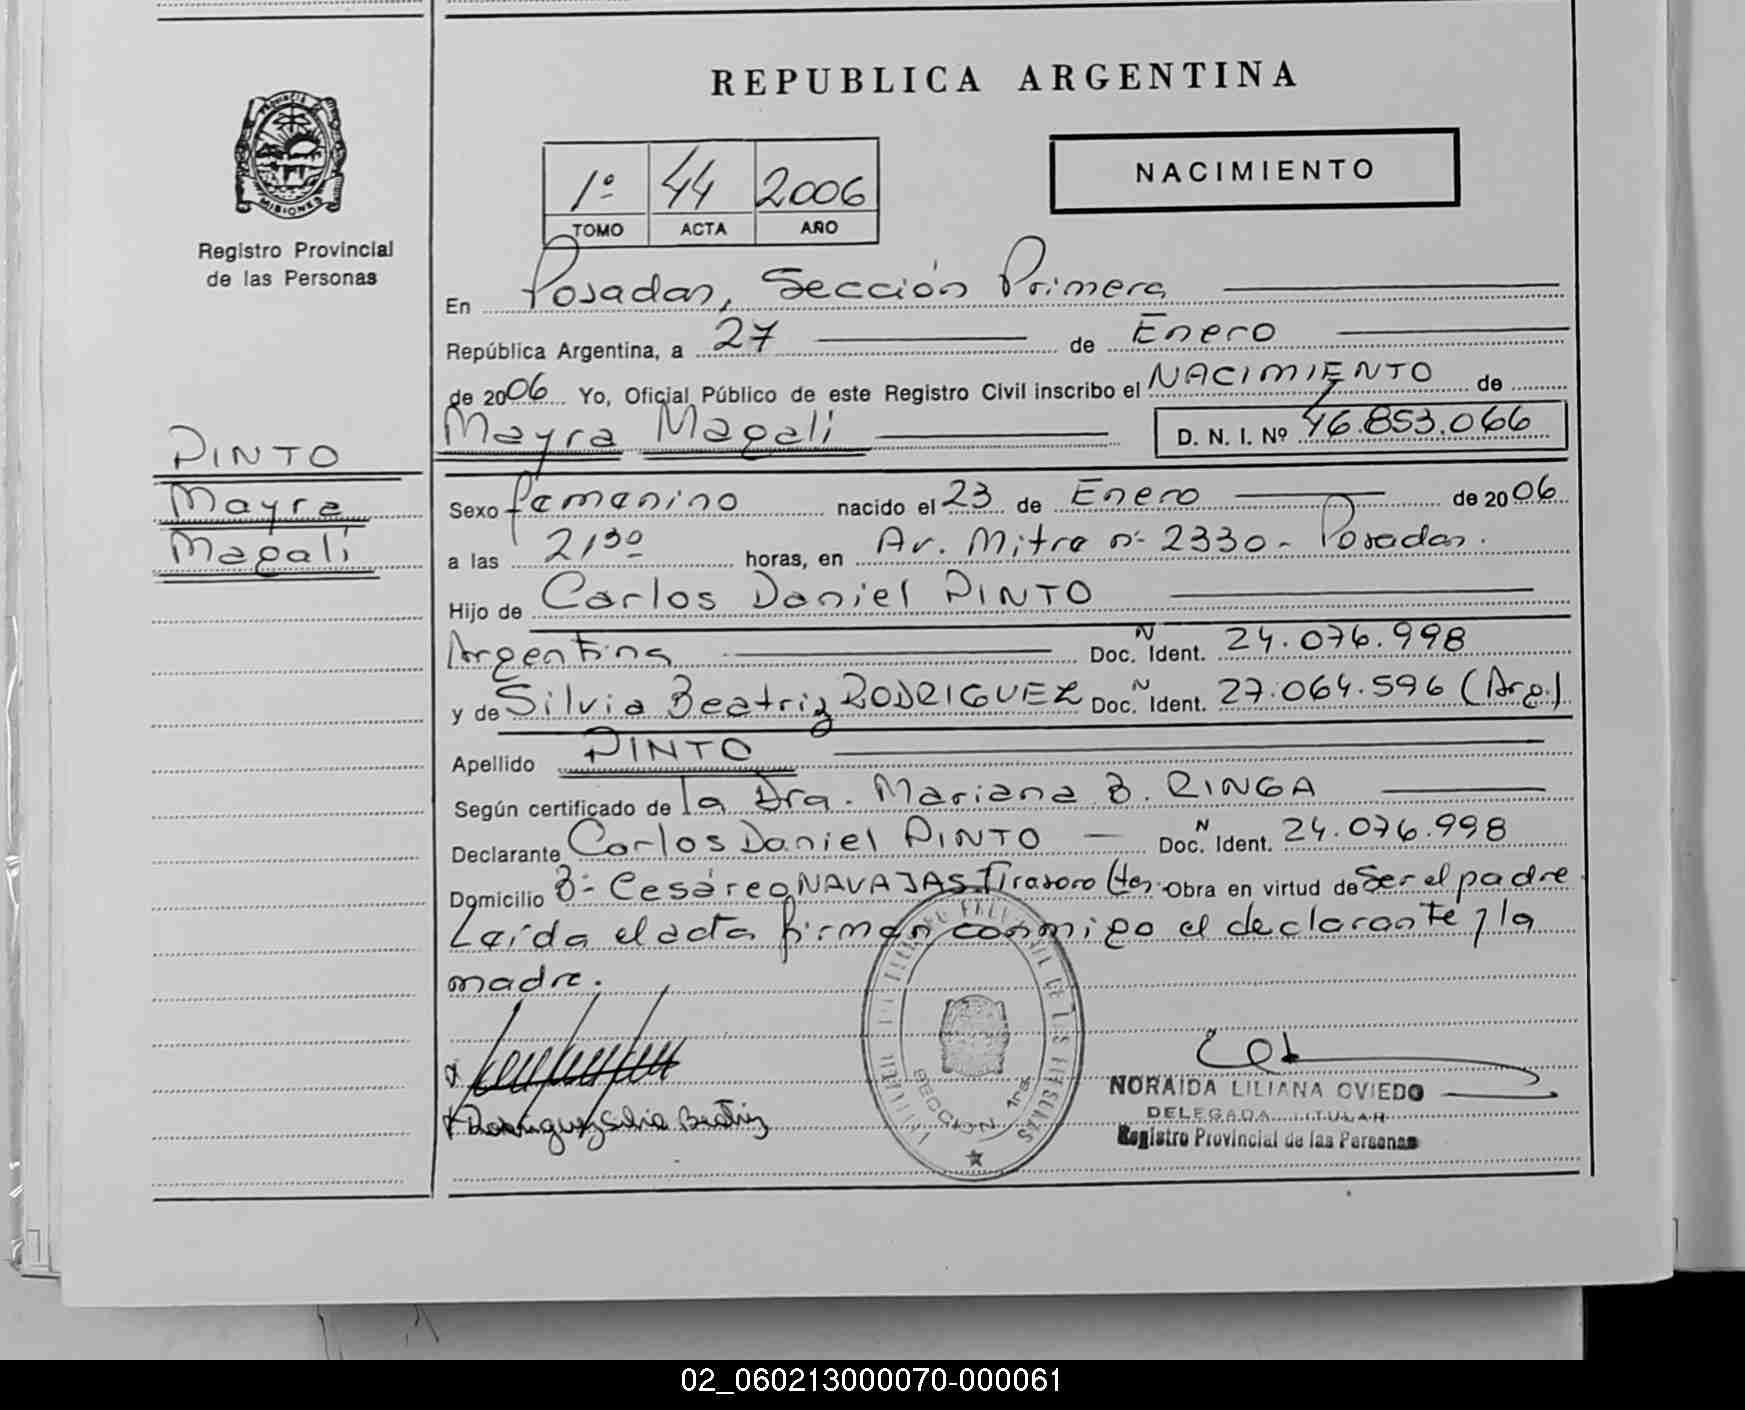 REPUBLICA ARGENTINA
PROVINCIA
MISIONES
Registro Provincial
de las Personas
1º 44 2006
TOMO ACTA AÑO
NACIMIENTO
En Posadas, Sección Primera
República Argentina, a 27 de Enero
de 2006 Yo, Oficial Público de este Registro Civil inscribo el NACIMIENTO de
Mayra Magalí D. N. I. Nº 46.853.066
PINTO
Mayra
Magalí
Sexo femenino nacido el 23 de Enero de 2006
a las 21³⁰ horas, en Av. Mitre nº 2330 - Posadas.
Hijo de Carlos Daniel PINTO
Argentina Doc. N Ident. 24.076.998
y de Silvia Beatriz RODRIGUEZ Doc. N Ident. 27.064.596 (Arg.)
Apellido PINTO
Según certificado de la Dra. Mariana B. RINGA
Declarante Carlos Daniel PINTO Doc. N Ident. 24.076.998
Domicilio Bº Cesáreo NAVAJAS. Obra en virtud de Ser el padre.
Leída el acta firman conmigo el declarante y la
madre.
Rodriguez Silvia Beatriz
SECCION 1ra
NORAIDA LILIANA OVIEDO
DELEGADA TITULAR
Registro Provincial de las Personas
02_060213000070-000061